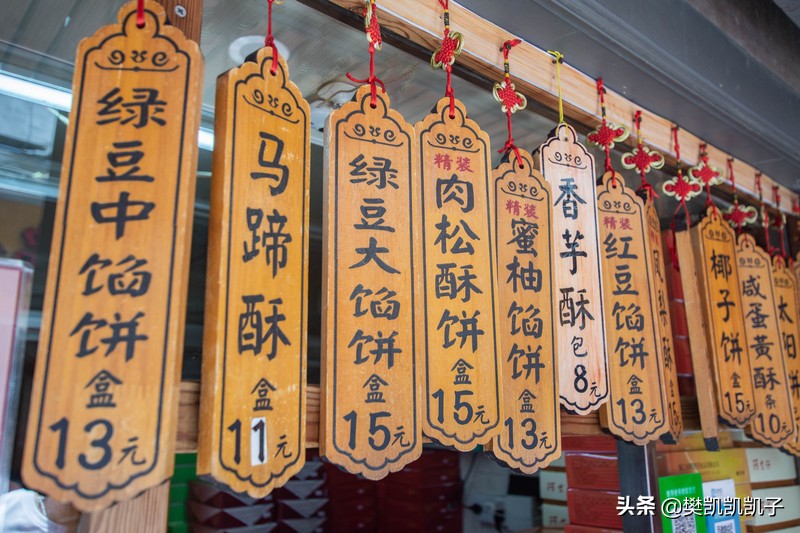 绿豆中馅饼
盒
13元
马蹄酥
盒
11元
绿豆大馅饼
盒
15元
精装
肉松酥饼
盒
15元
精装
蜜柚馅饼
盒
13元
香芋酥
包
8元
精装
红豆馅饼
盒
13元
凤梨酥
椰子饼
盒
15元
咸蛋黄酥
条
10元
太阳饼
头条 @樊凯凯凯子